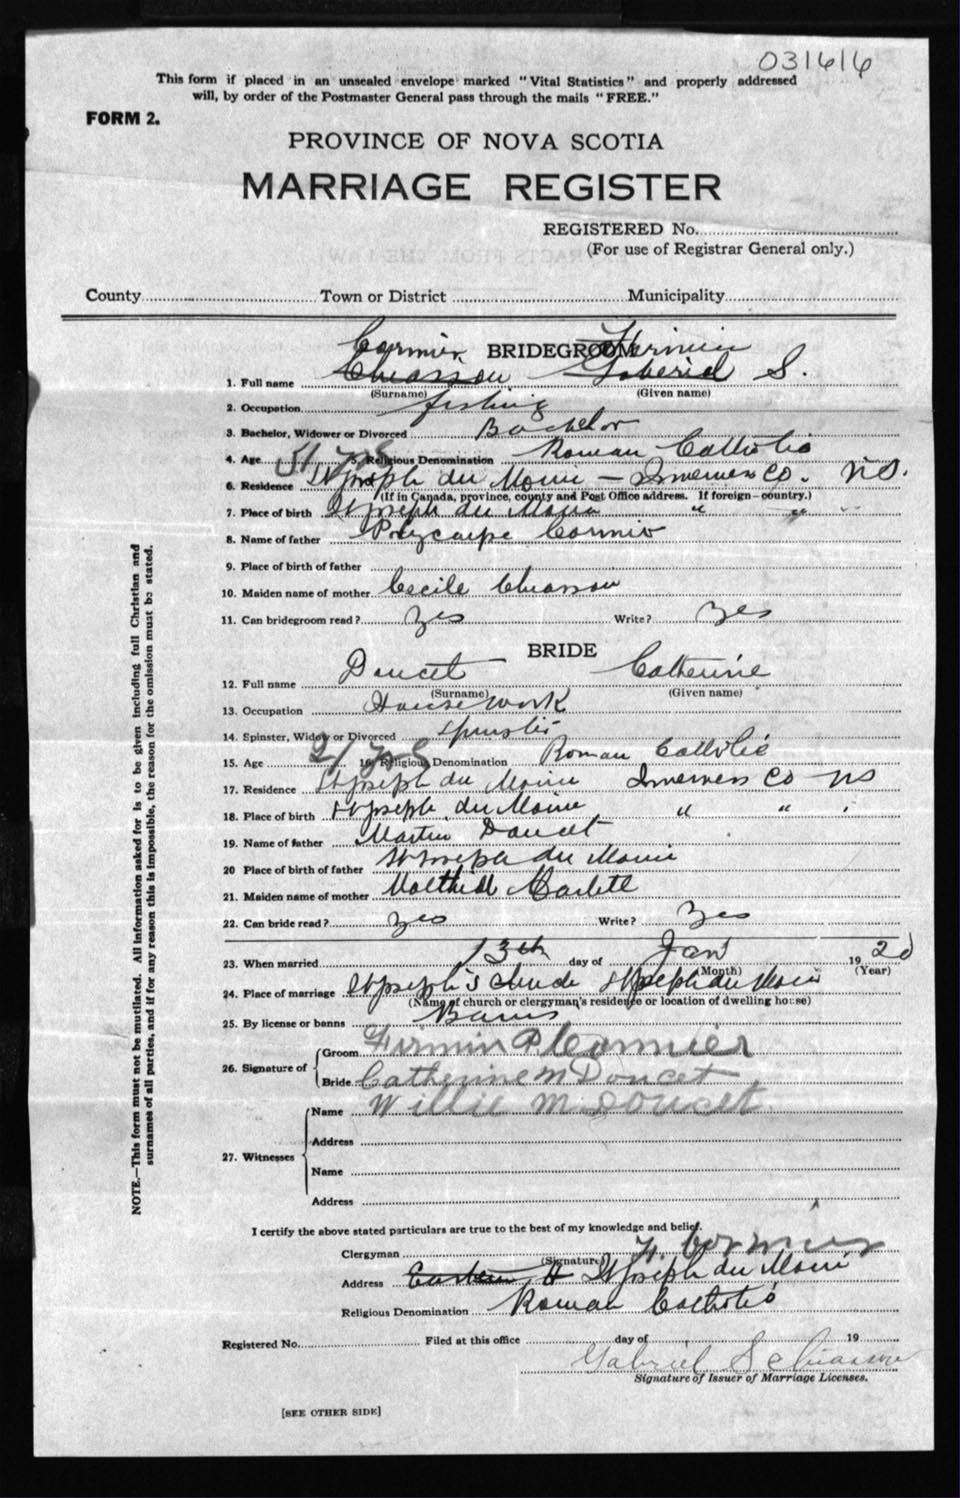 031616
This form if placed in an unsealed envelope marked "Vital Statistics" and properly addressed
will, by order of the Postmaster General pass through the mails "FREE."
FORM 2.
PROVINCE OF NOVA SCOTIA
MARRIAGE REGISTER
REGISTERED No.
(For use of Registrar General only.)
County Town or District Municipality
Cormier BRIDEGROOM Firmin
1. Full name Chiasson Gabriel S.
(Surname) (Given name)
2. Occupation fishing
3. Bachelor, Widower or Divorced Bachelor
4. Age 5. Religious Denomination Roman Catholic
6. Residence St Joseph du Moine - Inverness Co. NS.
(If in Canada, province, county and Post Office address. If foreign-country.)
7. Place of birth St Joseph du Moine " " "
8. Name of father Polycarpe Cormier
9. Place of birth of father
10. Maiden name of mother Cecile Chiasson
11. Can bridegroom read? Yes Write? Yes
BRIDE
12. Full name Doucet Catherine
(Surname) (Given name)
13. Occupation House work
14. Spinster, Widow or Divorced Spinster
15. Age 21 yrs 16. Religious Denomination Roman Catholic
17. Residence St Joseph du Moine Inverness Co NS
18. Place of birth St Joseph du Moine " " "
19. Name of father Martin Doucet
20 Place of birth of father St Joseph du Moine
21. Maiden name of mother
22. Can bride read? Yes Write? Yes
23. When married 13th day of Jan 19
(Month) (Year)
24. Place of marriage St Joseph's St Joseph du Moine
(Name of church or clergyman's residence or location of dwelling house)
25. By license or banns Banns
26. Signature of
Groom Firmin P Cormier
Bride Catherine M Doucet
27. Witnesses
Name Willie M Doucet
Address
Name
Address
I certify the above stated particulars are true to the best of my knowledge and belief.
Clergyman Cormier
(Signature)
Address St Joseph du Moine
Religious Denomination Roman Catholic
Registered No. Filed at this office day of 19
Gabriel S Chiasson
Signature of Issuer of Marriage Licenses.
[SEE OTHER SIDE]
NOTE.—This form must not be mutilated. All information asked for is to be given including full Christian and
surnames of all parties, and if for any reason this is impossible, the reason for the omission must be stated.